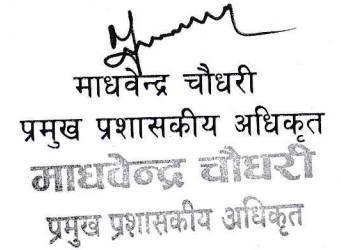 माधवेन्द्र चौधरी
प्रमुख प्रशासकीय अधिकृत
माधवेन्द्र चौधरी
प्रमुख प्रशासकीय अधिकृत